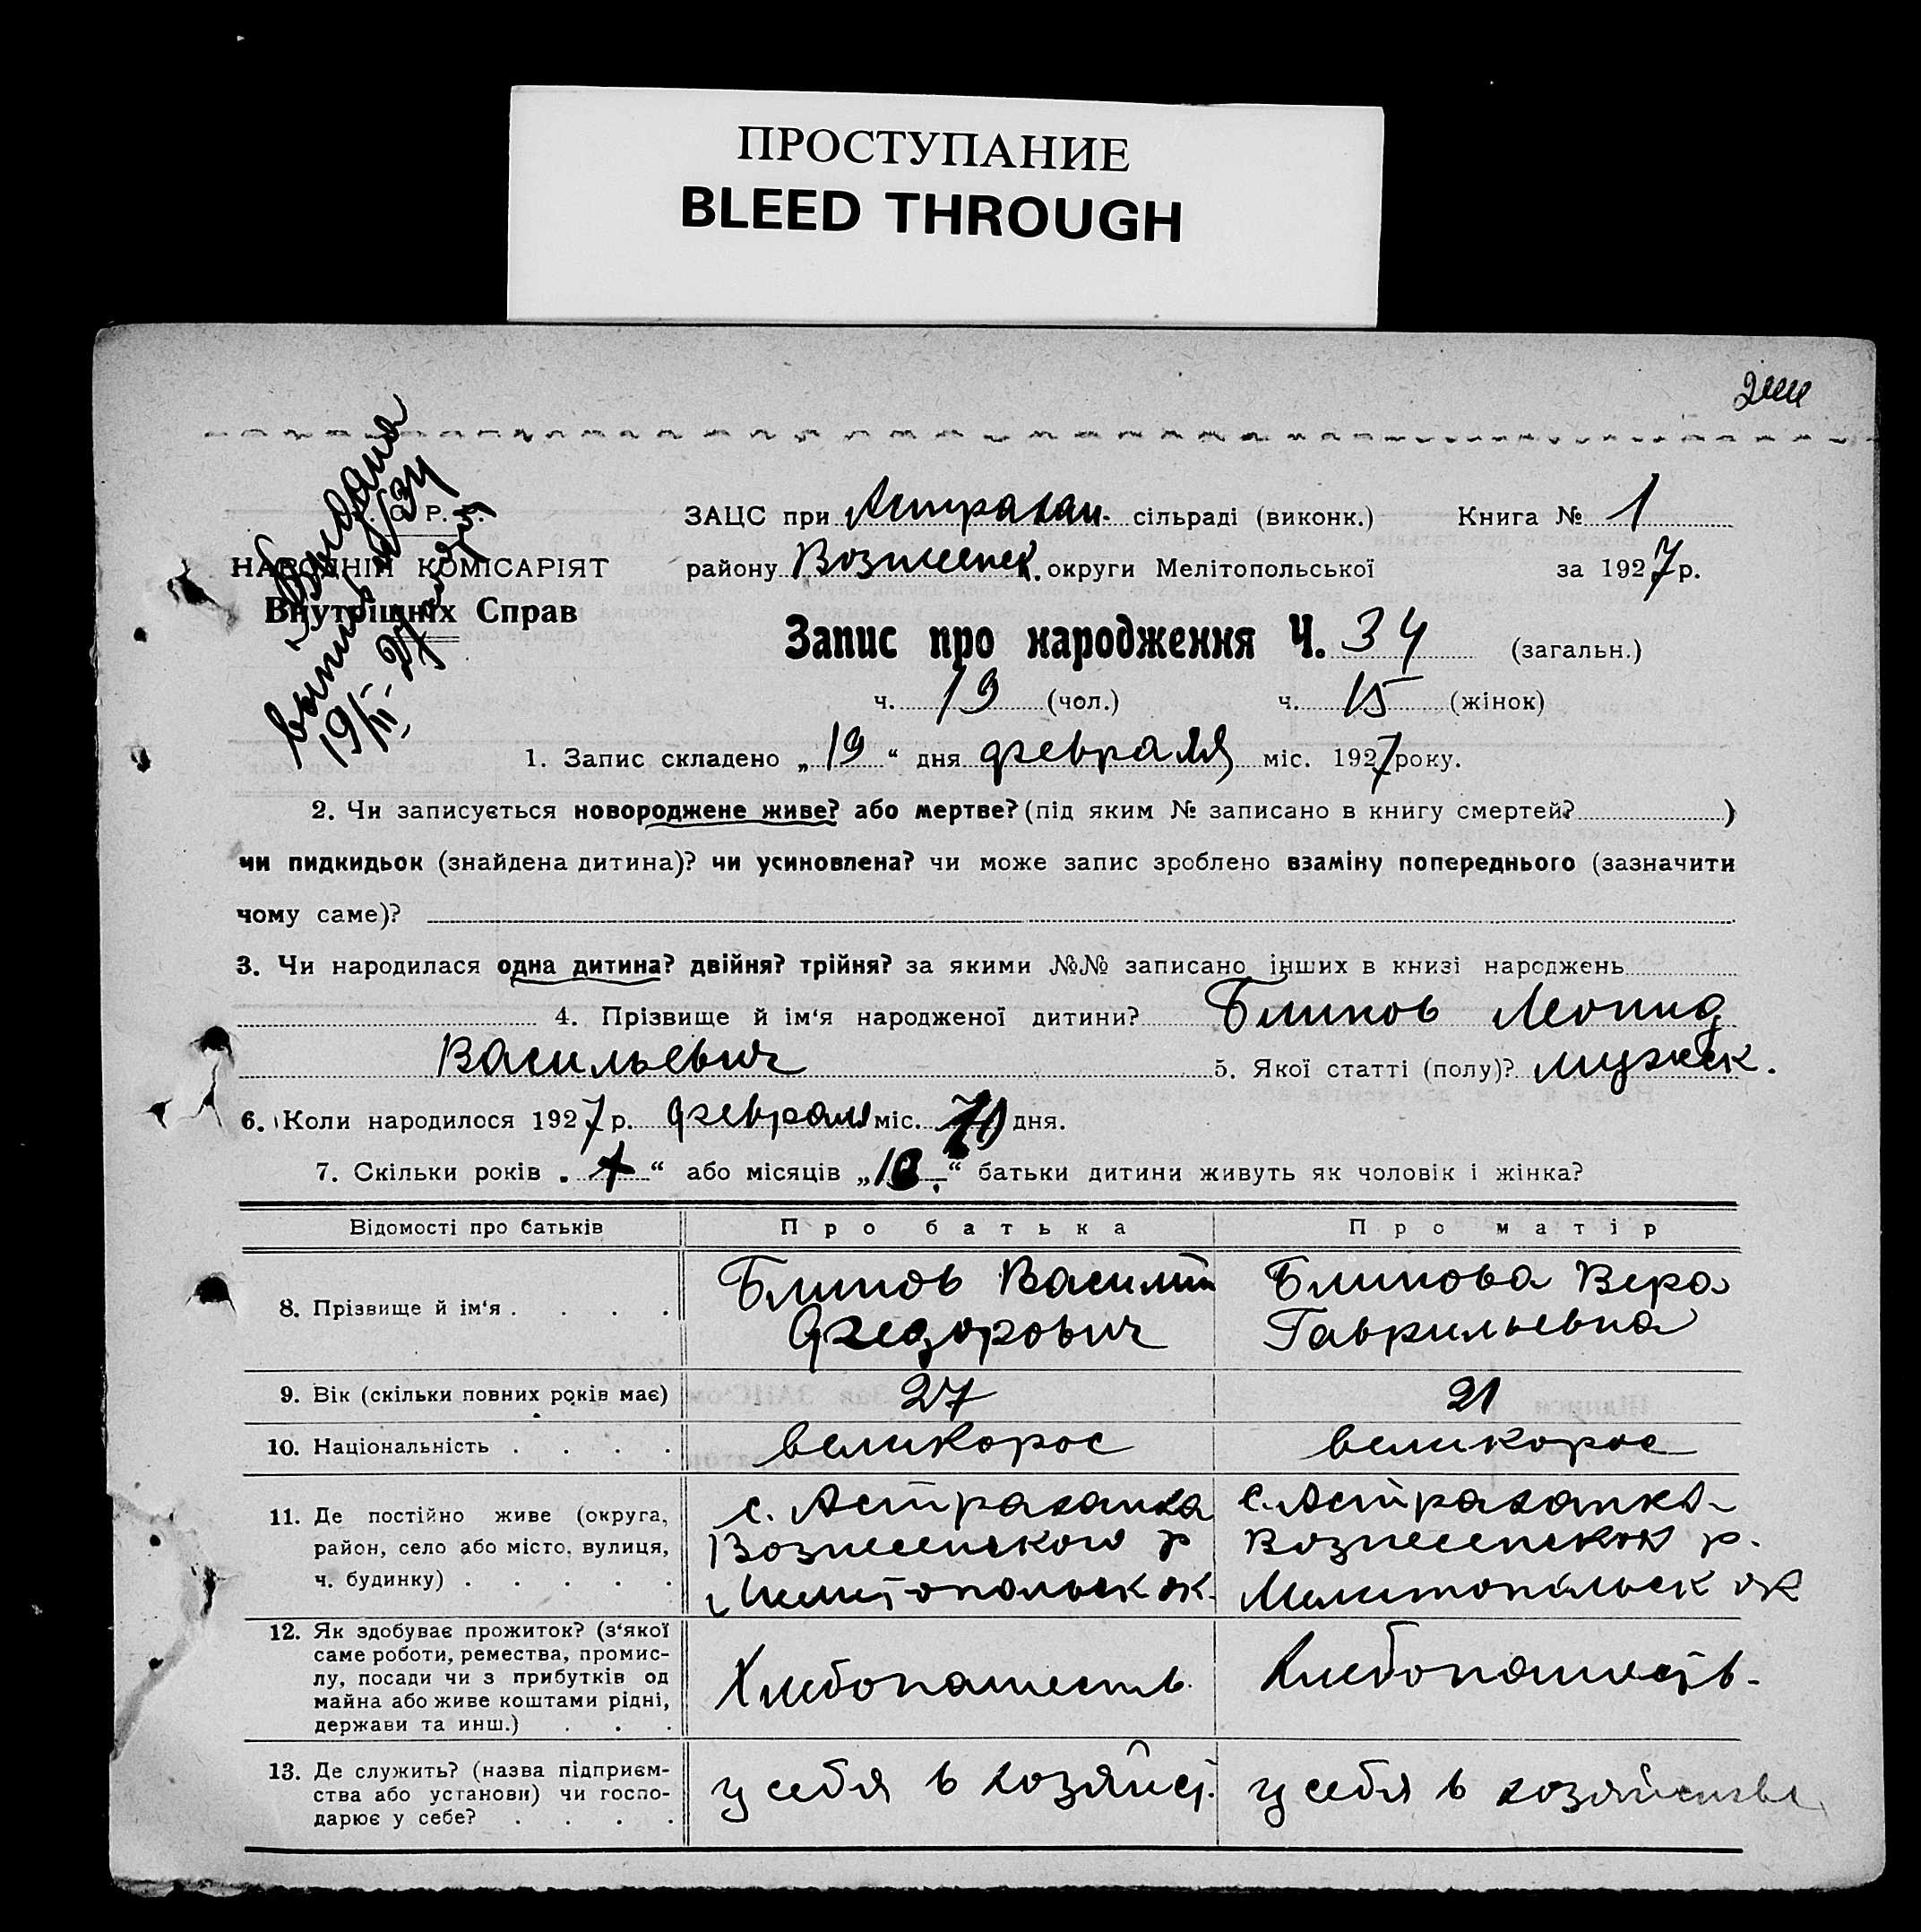 ПРОСТУПАНИЕ
BLEED THROUGH
Выдана
НАРОДНІЙ КОМІСАРІЯТ
Внутрішніх Справ
ЗАЦС при Астрахан. сільраді (виконк.) Книга № 1
району Вознесенск. округи Мелітопольської за 1927 р.
Запис про народження Ч. 34 (загальн.)
ч. 19 (чол.) ч. 15 (жінок)
1. Запис складено „19“ дня февраля міс. 1927 року.
2. Чи записується новороджене живе? або мертве? (під яким № записано в книгу смертей? )
чи пидкидьок (знайдена дитина)? чи усиновлена? чи може запис зроблено взаміну попереднього (зазначити
чому саме)?
3. Чи народилася одна дитина? двійня? трійня? за якими №№ записано інших в книзі народжень
4. Прізвище й ім‘я народженої дитини? Блинов Леонид
Васильевич 5. Якої статті (полу)? мужск.
6. Коли народилося 1927 р. февраля міс. дня.
7. Скільки років „ “ або місяців „ “ батьки дитини живуть як чоловік і жінка?
Відомості про батьків Про батька Про матір
8. Прізвище й ім‘я . . . . Блинов Василий Блинова Вера
Федорович Гаврильевна
9. Вік (скільки повних років має) 27 21
10. Національність . . . . великорос великорос
11. Де постійно живе (округа, с. Астраханка с. Астраханка
район, село або місто, вулиця, Вознесенского р Вознесенского р.
ч. будинку) . . . . . Мелитопольск ок. Мелитопольск ок
12. Як здобуває прожиток? (з‘якої
саме роботи, ремества, промис-
лу, посади чи з прибутків од Хлебопашеств. Хлебопашеств.
майна або живе коштами рідні,
держави та инш.) . . .
13. Де служить? (назва підприєм-
ства або установи) чи госпо- у себя в хозяйст. у себя в хозяйстве
дарює у себе? . . . .